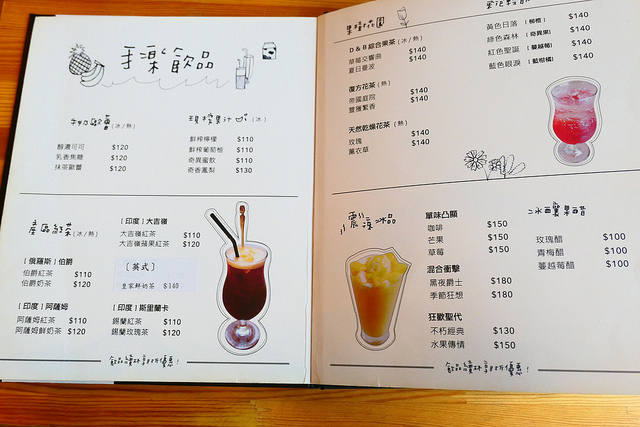 手澤飲品
(冰/熱)
醇濃可可 $120
乳香焦糖 $120
抹茶歐蕾 $120
現榨果汁 (冰)
鮮榨檸檬 $110
鮮榨葡萄柚 $110
奇異蜜飲 $110
奇香鳳梨 $130
產區紅茶 (冰/熱)
[俄羅斯] 伯爵
伯爵紅茶 $110
伯爵奶茶 $120
[印度] 阿薩姆
阿薩姆紅茶 $110
阿薩姆鮮奶茶 $120
[印度] 大吉嶺
大吉嶺紅茶 $110
大吉嶺蘋果紅茶 $120
[英式]
皇家鮮奶茶 $140
[印度] 斯里蘭卡
錫蘭紅茶 $110
錫蘭玫瑰茶 $120
飲品續杯享折優惠!
D & B 綜合果茶 (冰/熱) $140
草莓交響曲 $140
夏日曼波 $140
復方花茶 (熱)
帝國庭院 $140
豐腴繁香 $140
天然乾燥花茶 (熱)
玫瑰 $140
薰衣草 $140
黃色日落 (柳橙) $140
綠色森林 (奇異果) $140
紅色聖誕 (蔓越莓) $140
藍色眼淚 (藍柑橘) $140
冰品
單味凸顯
咖啡 $150
芒果 $150
草莓 $150
混合衝擊
黑夜爵士 $180
季節狂想 $180
狂歡聖代
不朽經典 $130
水果傳情 $150
冰釀果醋
玫瑰醋 $100
青梅醋 $100
蔓越莓醋 $100
飲品續杯享折優惠!